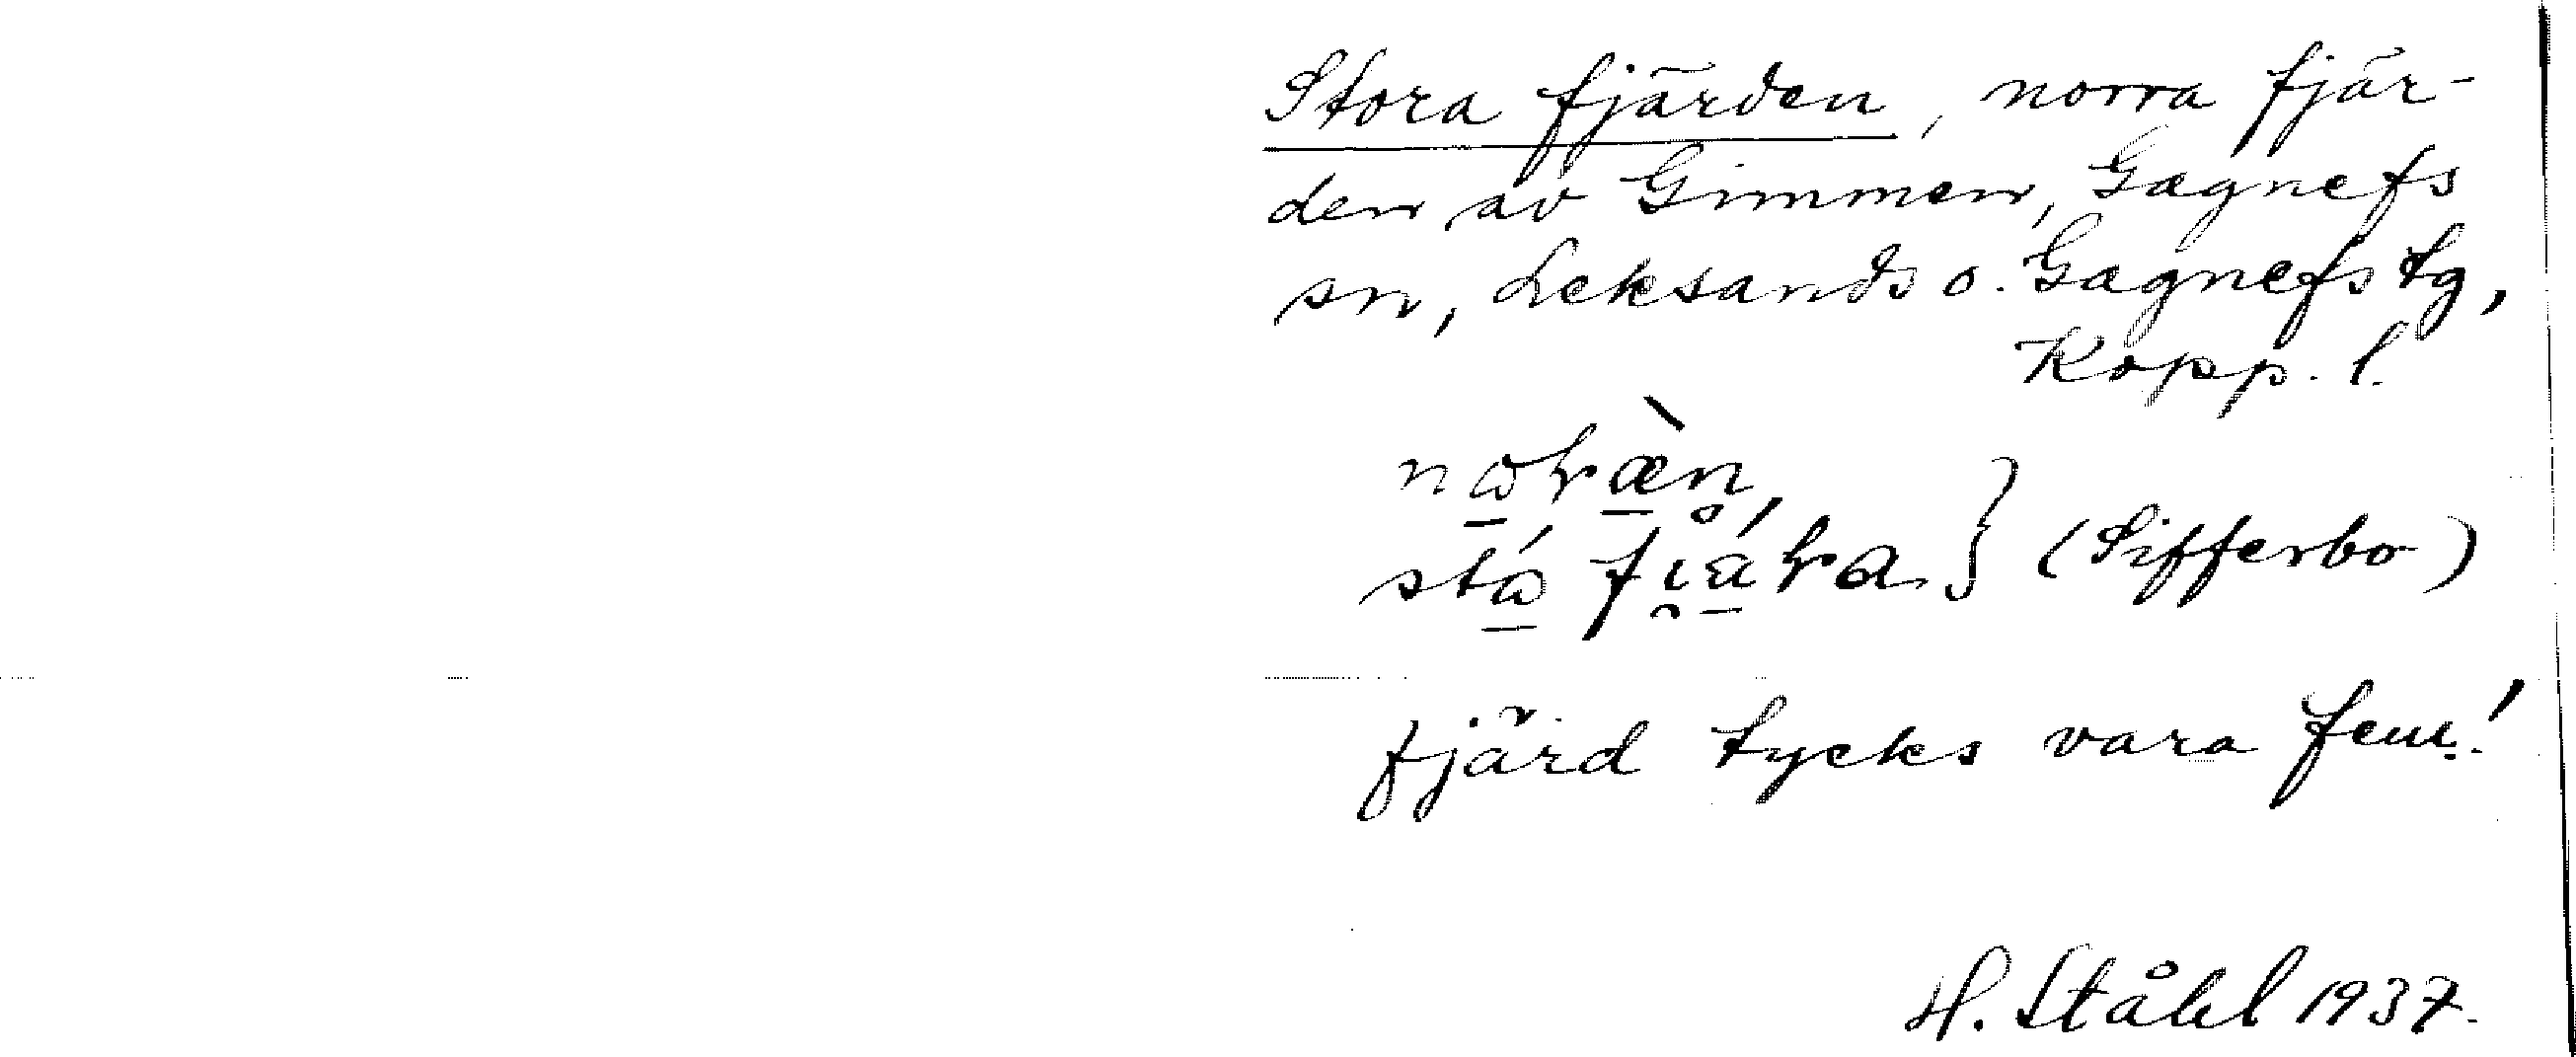 Stora fjärden, norra fjär-
den av Gimmen, Gagnefs
sn, Leksands o. Gagnefs tg,
Kopp. l.
(Sifferbo)
fjärd tycks vara fem.!
H. Ståhl 1937.